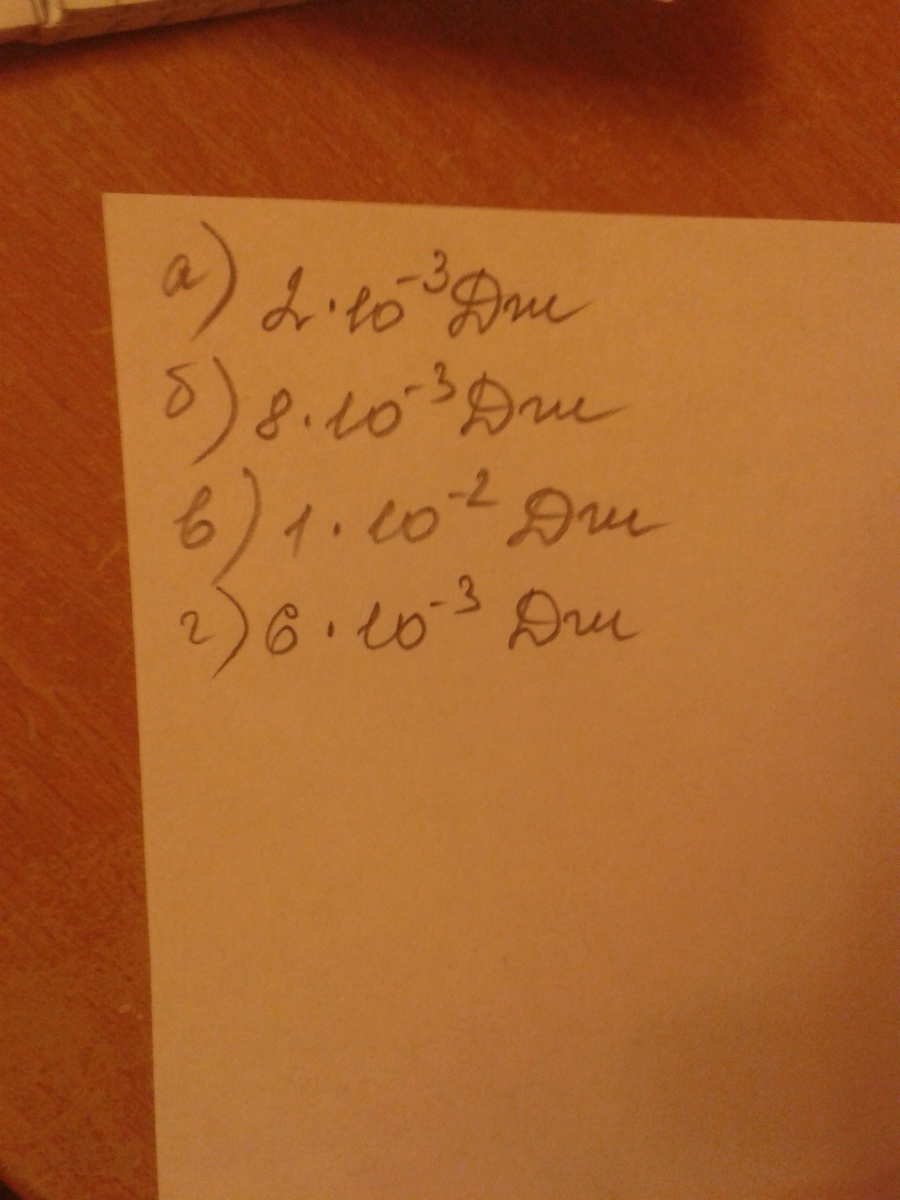 а) 2·10⁻³ Дж
б) 8·10⁻³ Дж
в) 1·10⁻² Дж
г) 6·10⁻³ Дж